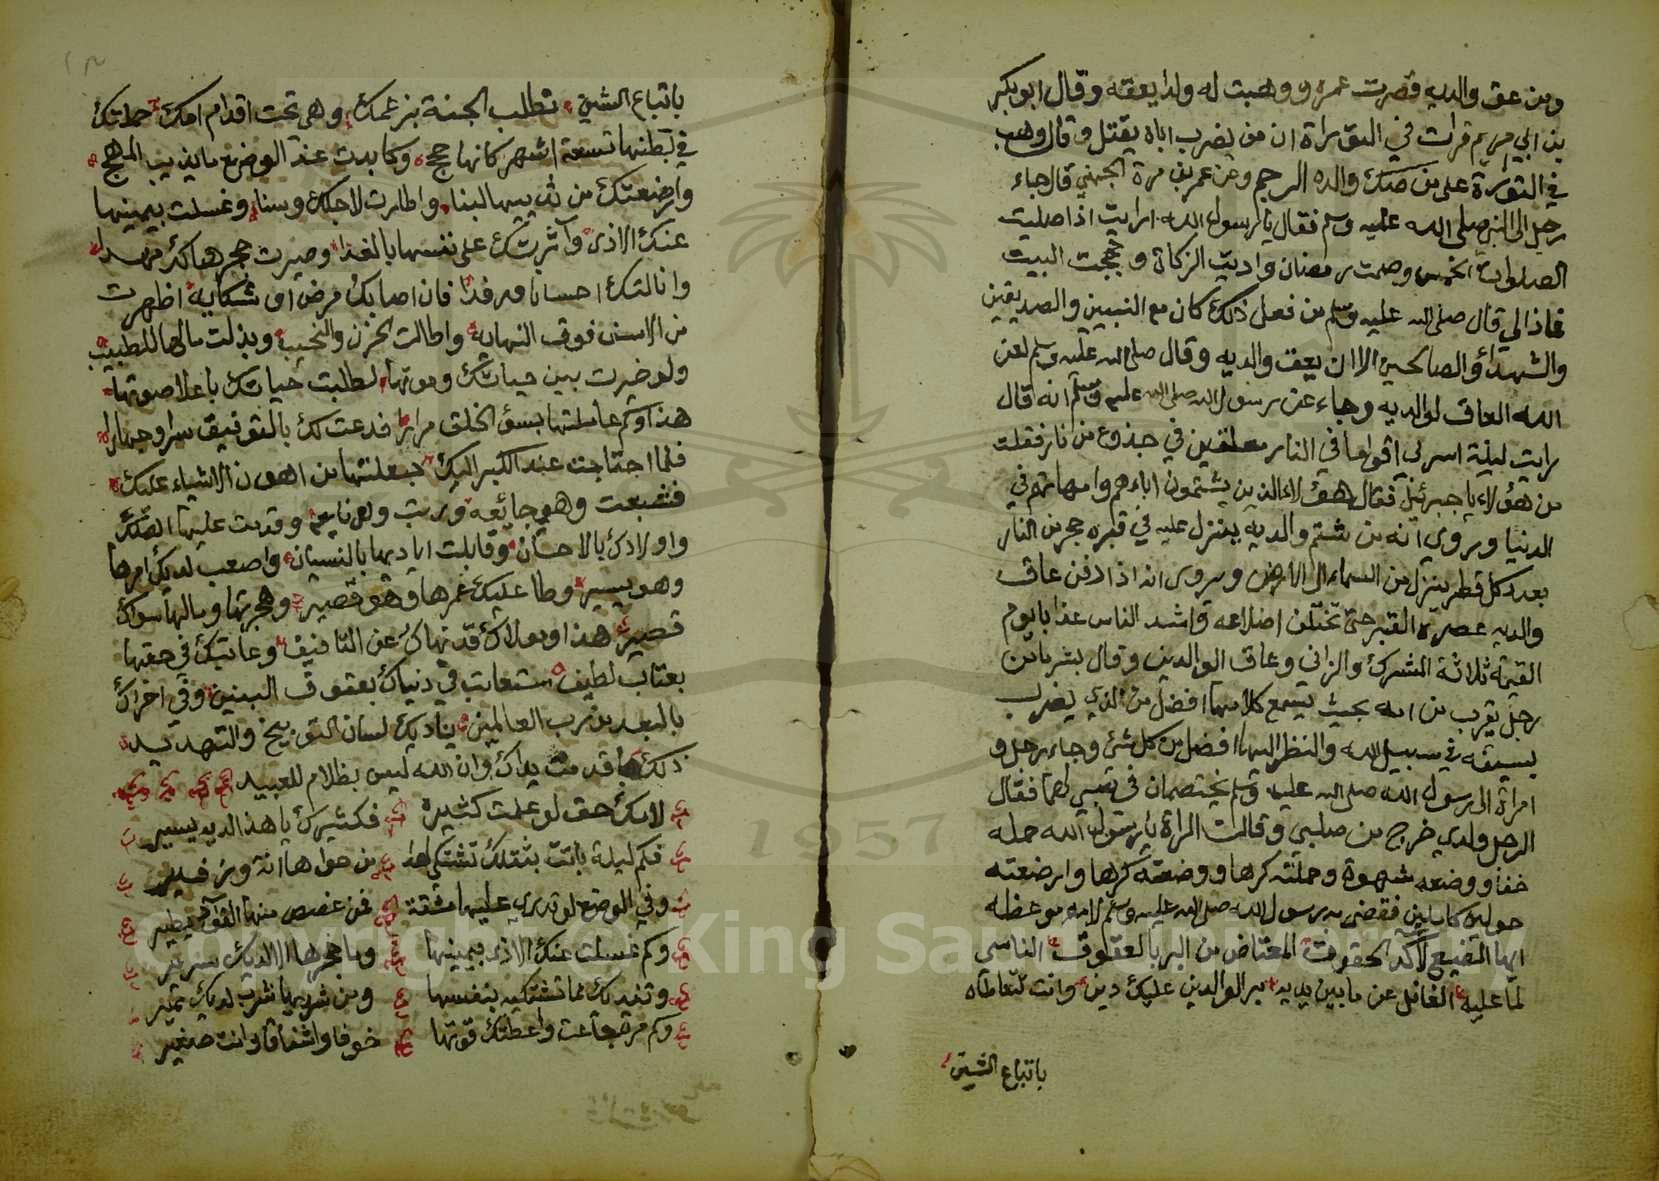 ومن عق والديه قصرت عمره ووهبت له ولدا يعقه وقال ابو بكر
بن ابي مريم قرات في التوراة ان من يضرب اباه يقتل وقال وهب
في التوراة على من صك والده الرجم وعن عمرو بن مرة الجهني قال جاء
رجل الى النبي صلى الله عليه وسلم فقال يا رسول الله ارايت اذا صليت
الصلوات الخمس وصمت رمضان واديت الزكاة وحججت البيت
فماذا لي قال صلى الله عليه وسلم من فعل ذلك كان مع النبيين والصديقين
والشهداء والصالحين الا ان يعق والديه وقال صلى الله عليه وسلم لعن
الله العاق لوالديه وجاء عن رسول الله صلى الله عليه وسلم انه قال
رايت ليلة اسري بي اقواما في النار معلقين في جذوع من نار فقلت
من هؤلاء يا جبرئيل فقال هؤلاء الذين يشتمون اباءهم وامهاتهم في
الدنيا ويروى انه من شتم والديه ينزل عليه في قبره جمر من النار
بعدد كل قطر ينزل من السماء الى الارض ويروى انه اذا دفن عاق
والديه عصره القبر حتى تختلف اضلاعه واشد الناس عذابا يوم
القيمة ثلاثة المشرك والزاني وعاق الوالدين وقال بشر ما من
رجل يقرب من امه بحيث يسمع كلامها افضل من الذي يضرب
بسيفه في سبيل الله والنظر اليها افضل من كل شئ وجاء رجل و
امراة الى رسول الله صلى الله عليه وسلم يختصمان في صبي لهما فقال
الرجل ولدي خرج من صلبي وقالت المراة يا رسول الله حمله
خفا ووضعه شهوة وحملته كرها ووضعته كرها وارضعته
حولين كاملين فقضى به رسول الله صلى الله عليه وسلم لامه موعظة
ايها المضيع لآكد الحقوق المعتاض من البر بالعقوق الناسي
لما عليه الغافل عن ما بين يديه بر الوالدين عليك دين وانت تتعاطاه
باتباع الشين
باتباع الشين تطلب الجنة بزعمك وهي تحت اقدام امك حملتك
في بطنها تسعة اشهر كانها حجج وكابدت عند الوضع ما يذيب المهج
وارضعتك من ثدييها لبنا واطارت لاجلك وسنا وغسلت بيمينها
عنك الاذى وآثرتك على نفسها بالغذا وصيرت حجرها لك مهدا
وانالتك احسانا ورفدا فان اصابك مرض او شكاية اظهرت
من الاسف فوق النهاية واطالت الحزن والنحيب وبذلت مالها للطبيب
ولو خيرت بين حياتك وموتها لطلبت حياتك باعلا صوتها
هذا وكم عاملتها بسوء الخلق مرارا فدعت لك بالتوفيق سرا وجهارا
فلما احتاجت عند الكبر اليك جعلتها من اهون الاشياء عليك
فشبعت وهي جائعة ورويت وهي قانعة وقدمت عليها اهلك
واولادك بالاحسان وقابلت اياديها بالنسيان واصعب لديك امرها
وهو يسير وطال عليك عمرها وهو قصير وهجرتها ومالها سواك
نصير هذا ومولاك قد نهاك عن التافيف وعاتبك في حقها
بعتاب لطيف ستعاقب في دنياك بعقوق البنين وفي اخراك
بالبعد من رب العالمين يناديك لسان التوبيخ والتهديد
ذلك بما قدمت يداك وان الله ليس بظلام للعبيد
لامك حق لو علمت كثيره فكثيرك يا هذا لديه يسير
فكم ليلة باتت بثقلك تشتكي لها من جواها انة وزفير
وفي الوضع لو تدري عليها مشقة فمن غصص منها الفؤاد يطير
وكم غسلت عنك الاذى بيمينها وما حجرها الا لديك سرير
وتفديك مما تشتكيه بنفسها ومن ثديها شرب لديك نمير
وكم مرة جاعت واعطتك قوتها خوفا واشفاقا وانت صغير
Copyright © King Saud University
1957